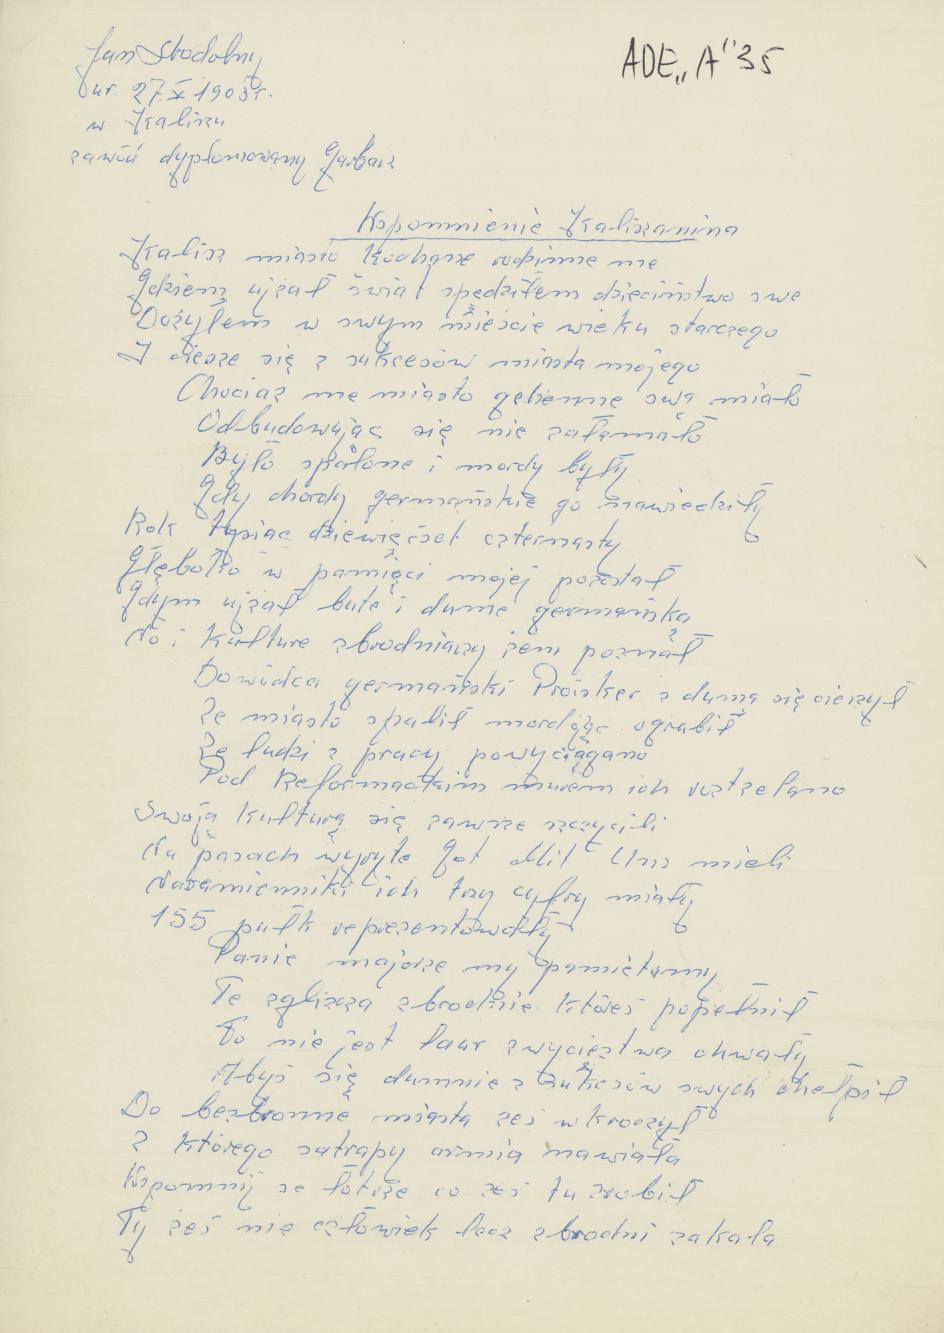 Jan Stodolny
ur. 27 X 1903 r.
w Kaliszu
zawód dyplomowany Garbarz
ADE „A" 35
Wspomnienie Kaliszanina
Kalisz miasto kochane rodzinne me
Gdziem ujzał świat spędziłem dzieciństwo swe
Dożyłem w swym mieście wieku starczego
I ciesze się z sukcesów miasta mojego
Chociaż me miasto gehenne swą miało
Odbudowując się nie załamało
Było spalone i mordy były
Gdy chordy germańskie go nawiedziły
Rok tysiąc dziewięćset czternasty
Głęboko w pamięci mojej pozostał
Gdym ujzał bute i dume germańską
No i kulture zbrodniczy żem poznał
Dowódca germański Projsker z dumą się cieszył
Że miasto spalił mordując ograbił
Że ludzi z pracy powyciągano
Pod Reformackim murem ich roztrzelano
Swoją kulturą się zawsze szczycili
Na pasach wyryte Got Mit Uns mieli
Naramienniki ich trzy cyfry miały
155 pułk reprezentowały
Panie majorze my pamiętamy
Te zgliszcza zbrodnie któreś popełnił
To nie jest laur zwycięztwa chwały
Abyś się dumnie z sukcesów swych chełpił
Do bezbronne miasta żeś wkroczył
Z którego satrapy armia nawiała
Wspomnij se łotrze co żeś tu zrobił
Ty żeś nie człowiek lecz zbrodni zakała